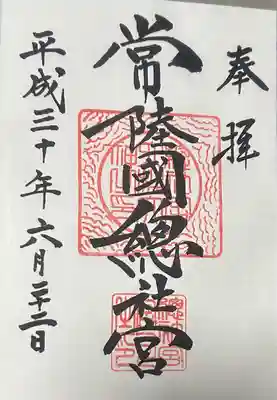 奉拝
常陸國總社宮
平成三十年六月二十三日